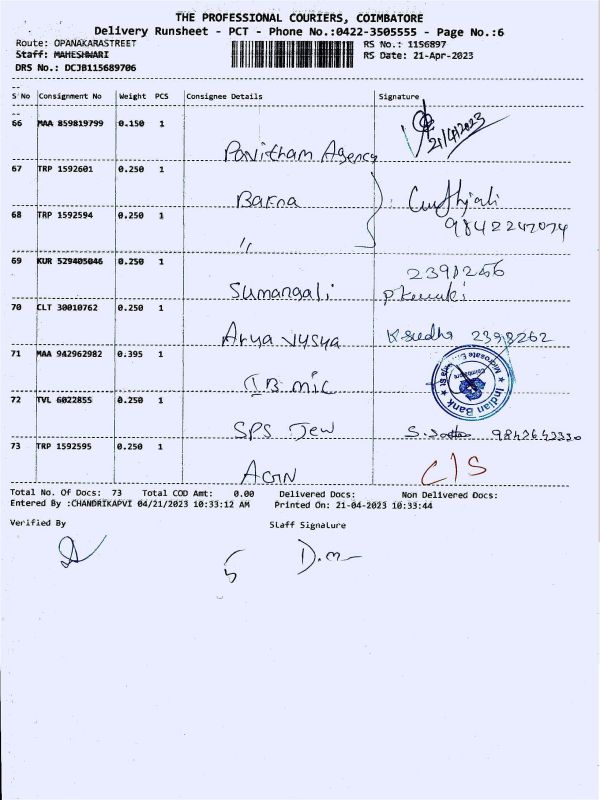 THE PROFESSIONAL COURIERS, COIMBATORE
Delivery Runsheet - PCT - Phone No.:0422-3505555 - Page No.:6
Route: OPANAKARASTREET RS No.: 1156897
Staff: MAHESHWARI RS Date: 21-Apr-2023
DRS No.: DCJB115689706
S No Consignment No Weight PCS Consignee Details Signature
66 MAA 859819799 0.150 1
21/4/2023
Pavitham Agency
67 TRP 1592601 0.250 1
Barna
68 TRP 1592594 0.250 1
9842247074
〃
69 KUR 529405046 0.250 1
2391256
Sumangali
70 CLT 30010762 0.250 1
Arya vysya K Sudha 2398262
71 MAA 942962982 0.395 1
IB mic
Indian Bank
72 TVL 6022855 0.250 1
SPS Jew 9842643330
73 TRP 1592595 0.250 1
C/S
Total No. Of Docs: 73 Total COD Amt: 0.00 Delivered Docs: Non Delivered Docs:
Entered By :CHANDRIKAPVI 04/21/2023 10:33:12 AM Printed On: 21-04-2023 10:33:44
Verified By Staff Signature